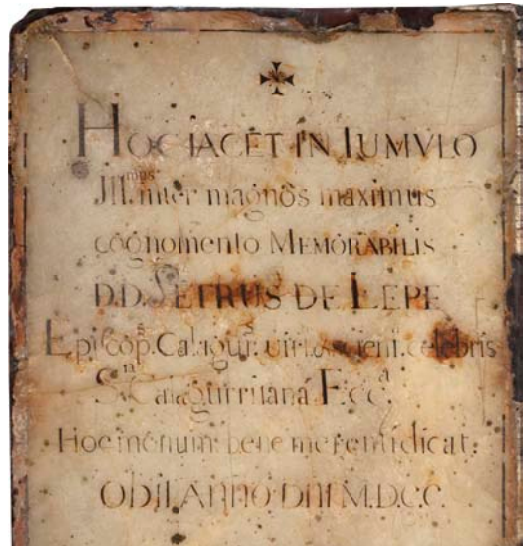 HOC IACET IN TUMVLO
Ill.mus inter magnos maximus
cognomento MEMORABILIS
D.D. PETRUS DE LEPE
Episcop.s Calagur.s virt. scient. celebris
S.ta Calagurritana Ecc.a
Hoc monum. bene merenti dicat.
OBIIT ANNO DNI M.D.C.C.